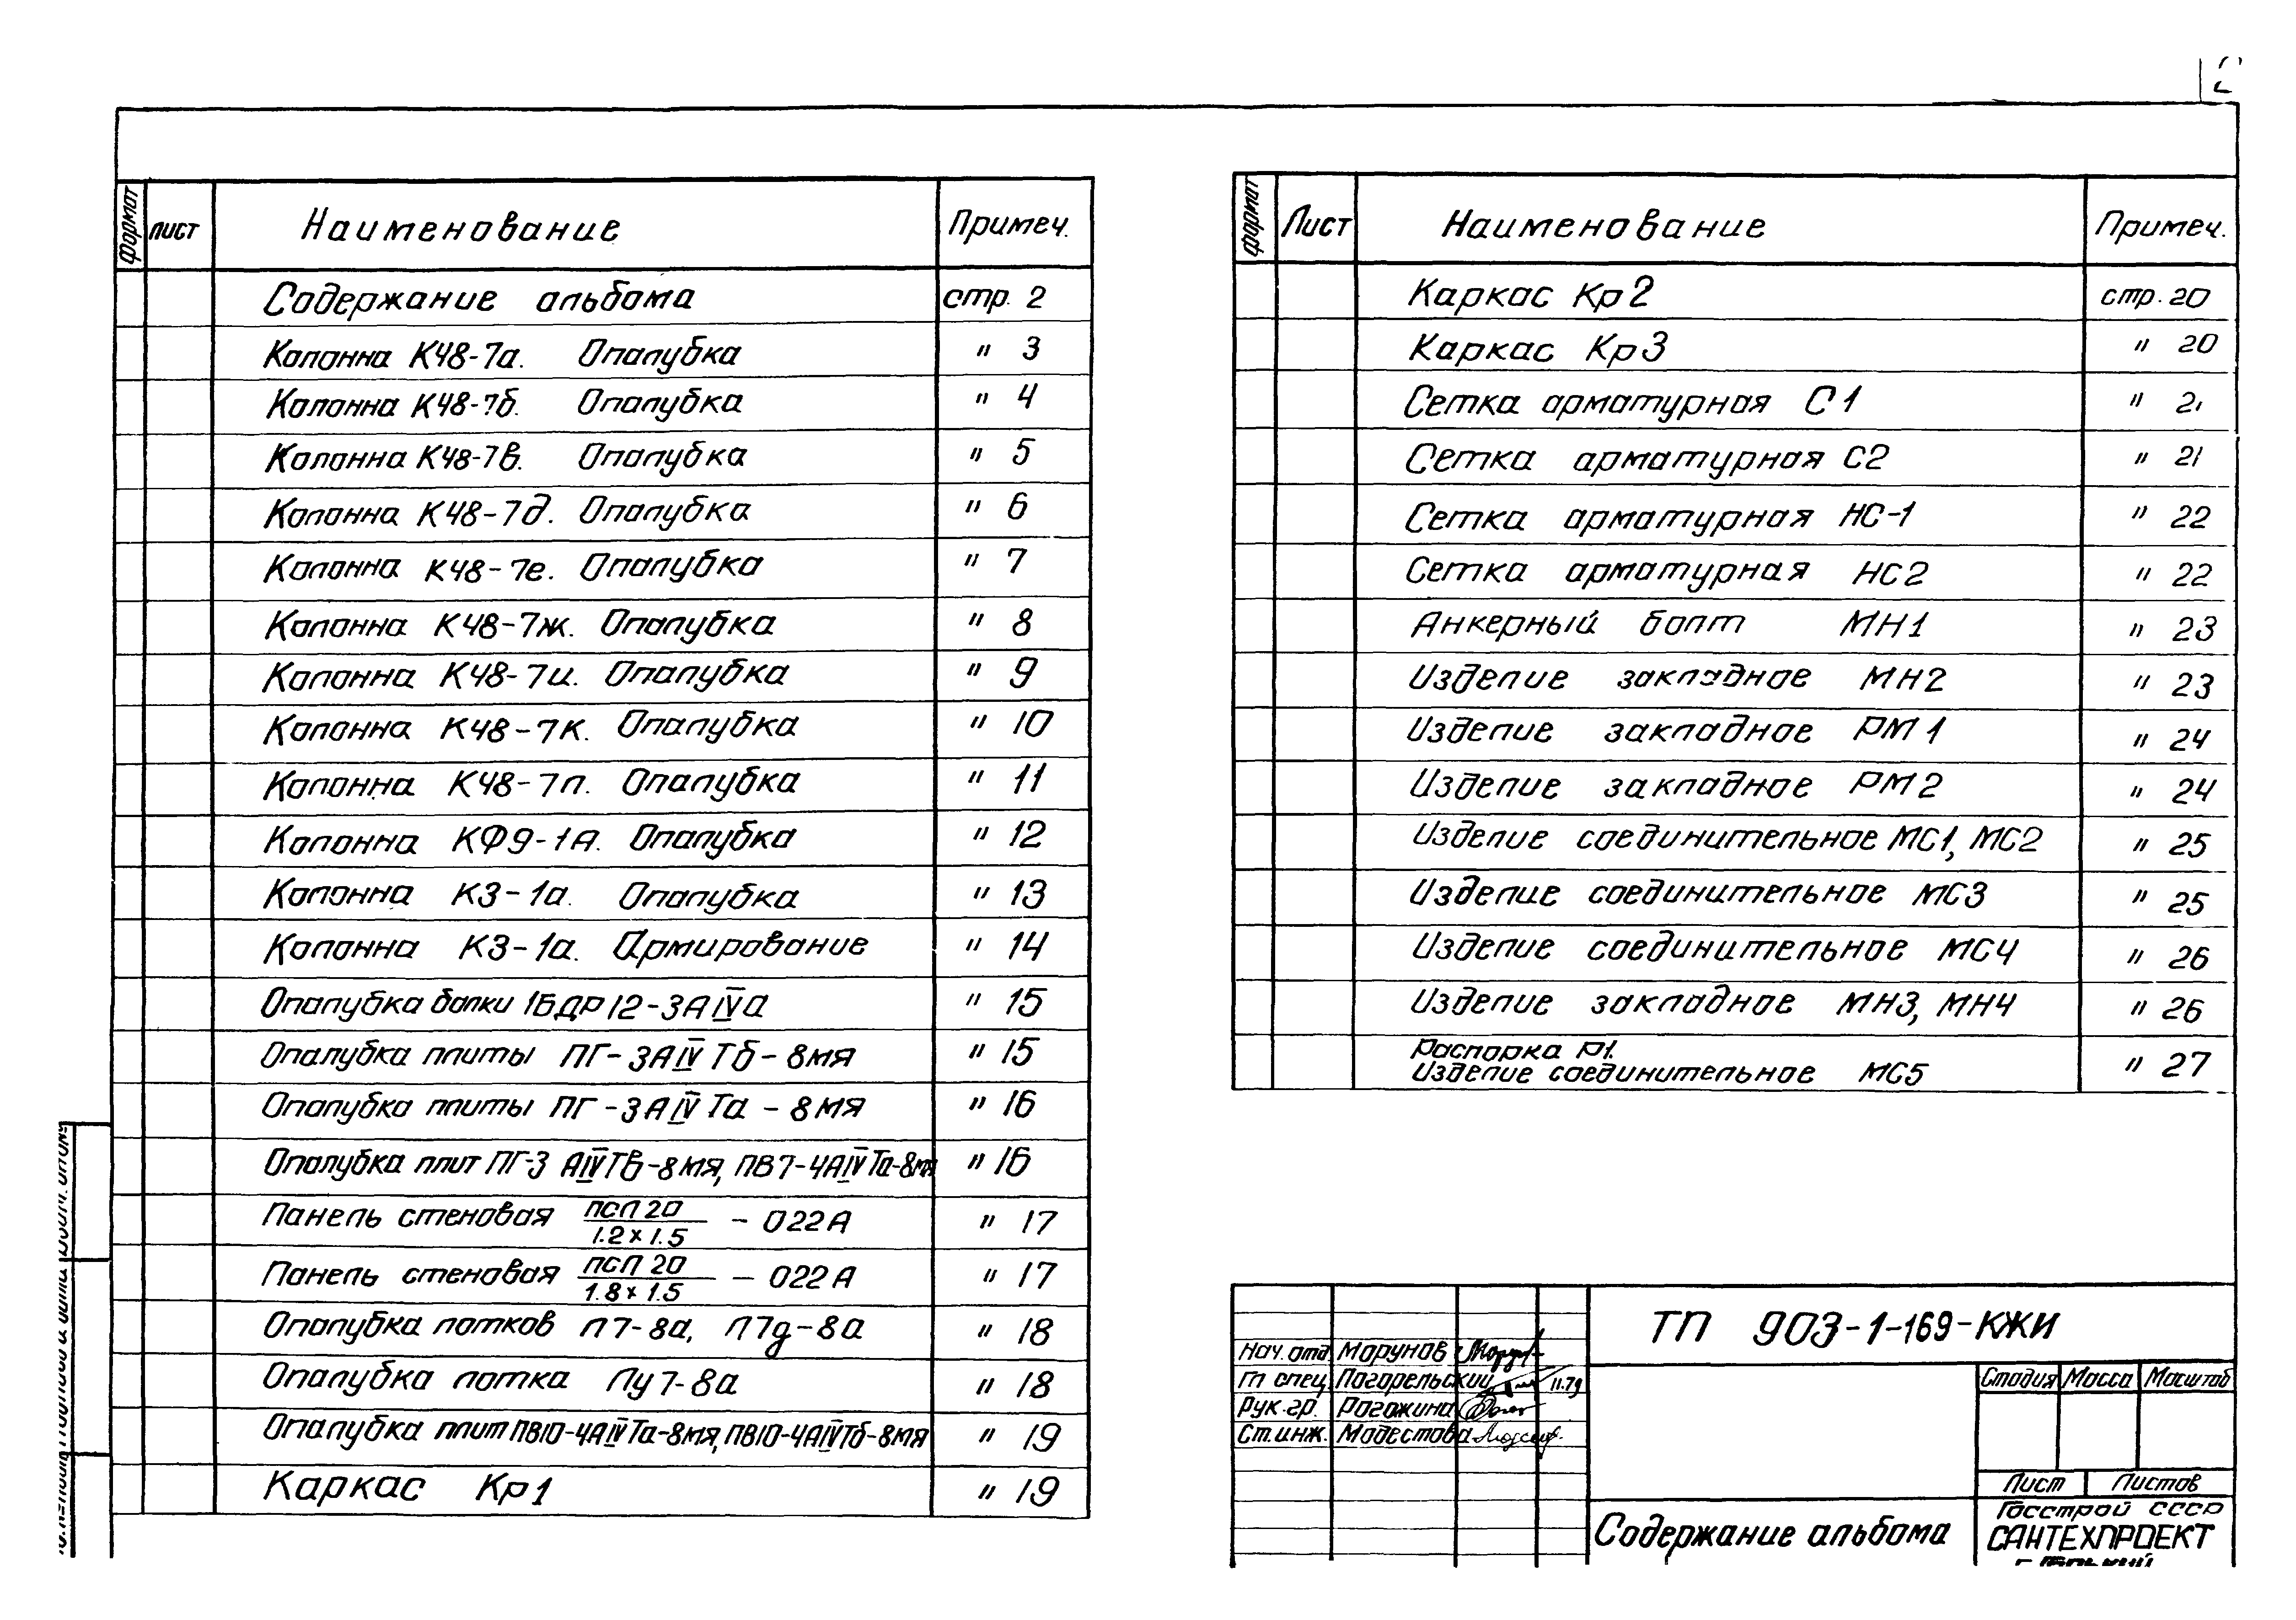 2
Формат лист Наименование Примеч.
Содержание альбома стр. 2
Колонна К48-7а. Опалубка " 3
Колонна К48-7б. Опалубка " 4
Колонна К48-7в. Опалубка " 5
Колонна К48-7д. Опалубка " 6
Колонна К48-7е. Опалубка " 7
Колонна К48-7ж. Опалубка " 8
Колонна К48-7и. Опалубка " 9
Колонна К48-7к. Опалубка " 10
Колонна К48-7л. Опалубка " 11
Колонна КФ9-1А. Опалубка " 12
Колонна К3-1а. Опалубка " 13
Колонна К3-1а. Армирование " 14
Опалубка балки 1БДР12-3АIVа " 15
Опалубка плиты ПГ-3АIVТб-8мя " 15
Опалубка плиты ПГ-3АIVТа-8мя " 16
Опалубка плит ПГ-3 АIVТв-8мя, ПВ7-4АIVТа-8мя " 16
Панель стеновая ПСЛ 20 / 1.2×1.5 - 022А " 17
Панель стеновая ПСЛ 20 / 1.8×1.5 - 022А " 17
Опалубка лотков Л7-8а, Л7д-8а " 18
Опалубка лотка Лу7-8а " 18
Опалубка плит ПВ10-4АIVТа-8мя, ПВ10-4АIVТб-8мя " 19
Каркас Кр1 " 19
формат Лист Наименование Примеч.
Каркас Кр2 стр. 20
Каркас Кр3 " 20
Сетка арматурная С1 " 21
Сетка арматурная С2 " 21
Сетка арматурная НС-1 " 22
Сетка арматурная НС2 " 22
Анкерный болт МН1 " 23
Изделие закладное МН2 " 23
Изделие закладное РМ1 " 24
Изделие закладное РМ2 " 24
Изделие соединительное МС1, МС2 " 25
Изделие соединительное МС3 " 25
Изделие соединительное МС4 " 26
Изделие закладное МН3, МН4 " 26
Распорка Р1.
Изделие соединительное МС5 " 27
ТП 903-1-169-КЖИ
Нач. отд. Марунов
Гл спец. Погорельский 11.79
Рук. гр. Рогожина
Ст. инж. Модестова
Стадия Масса Масштаб
Лист Листов
Содержание альбома
Госстрой СССР
САНТЕХПРОЕКТ